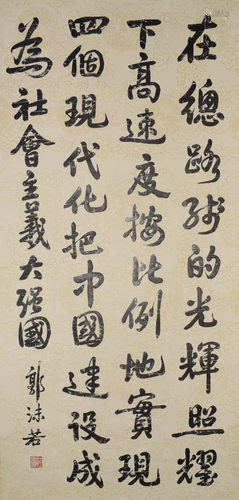 在總路线的光輝照耀
下高速度按比例地實現
四個現代化把中國建設成
為社會主義大强國
郭沫若